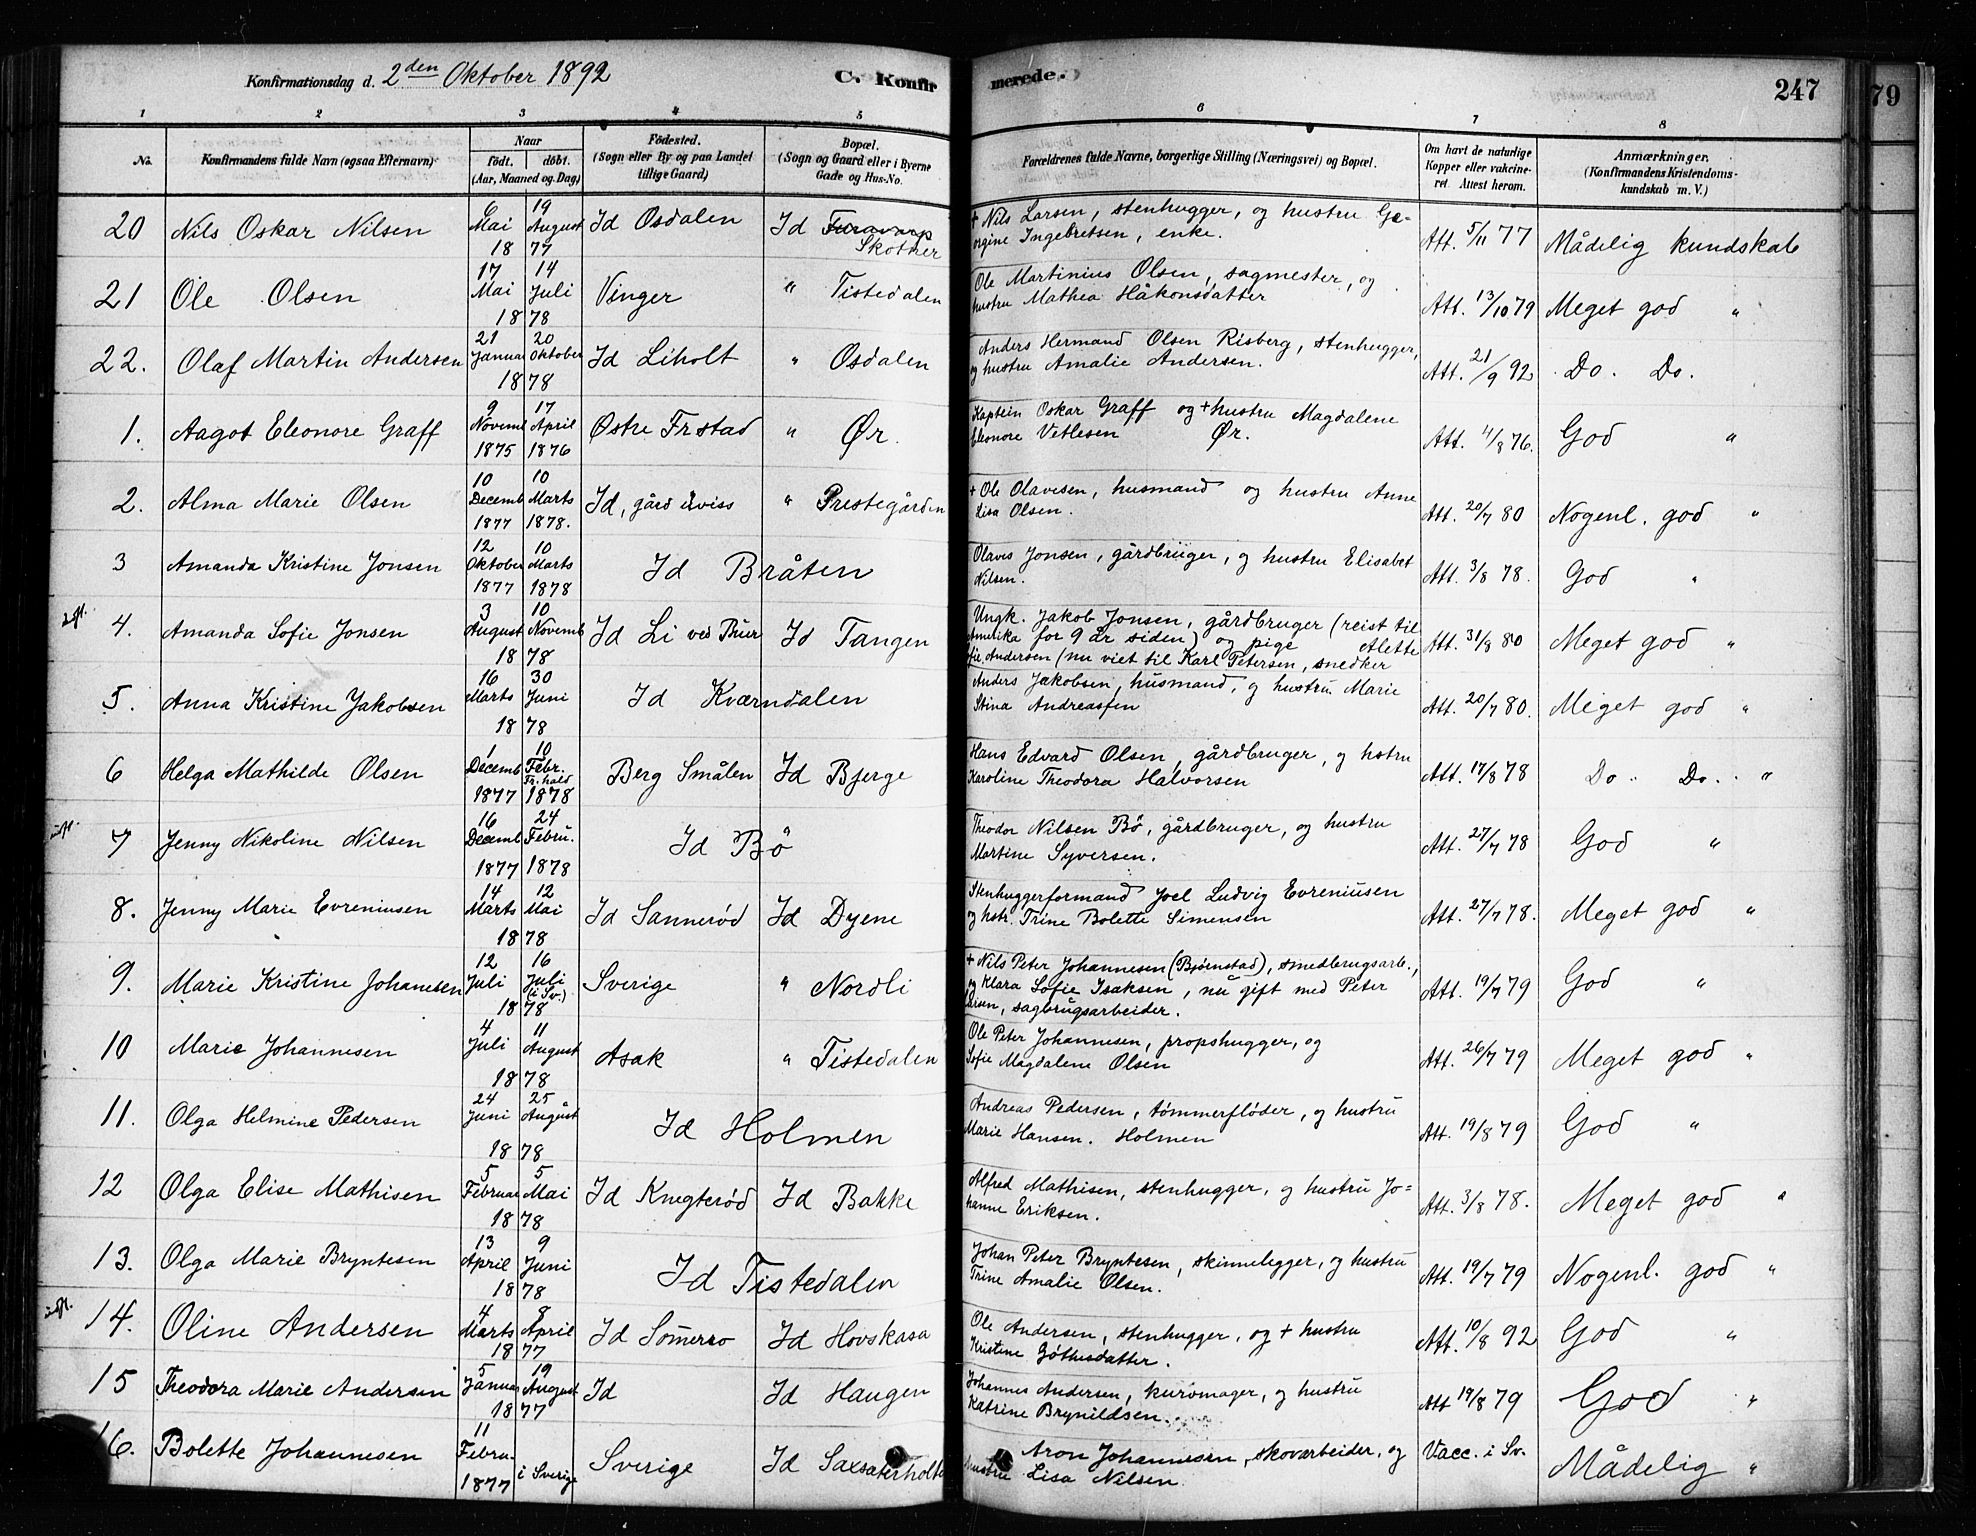 Konfirmationsdag d. 2den Oktober 1892 C. Konfir merede. 247 79
1 2 3 4 5 6 7 8
No. Konfirmandens fulde Navn (ogsaa Efternavn). Naar født. døbt. (Aar, Maaned og Dag) Fødested. (Sogn eller By og paa Landet tillige Gaard) Bopæl. (Sogn og Gaard eller i Byerne Gade og Hus-No. Forældrenes fulde Navne, borgerlige Stilling (Næringsvei) og Bopæl. Om havt de naturlige Kopper eller vakcineret. Attest herom. Anmærkninger. (Konfirmandens Kristendomskundskab m. V.)
20 Nils Oskar Nilsen 6 Mai 19 August 1877 Id Osdalen Id Skotner + Nils Larsen, stenhugger, og hustru Georgine Ingebretsen, enke. Att. 5/11 77 Mådelig kundskab
21 Ole Olsen 17 Mai 14 Juli 1878 Vinger " Tistedalen Ole Martinius Olsen, sagmester, og hustru Mathea Håkonsdatter Att. 13/10 79 Meget god "
22. Olaf Martin Andersen 21 Januar 20 Oktober 1878 Id Liholt " Osdalen Anders Hermand Olsen Risberg, stenhugger, og hustru Amalie Andersen. Att. 21/9 92 Do. Do.
1. Aagot Eleonore Graff 9 Novemb 1875 17 April 1876 Østre Frstad " Ør. Kaptein Oskar Graff og + hustru Magdalene Eleonore Vetlesen Ør. Att. 4/8 76. God "
2. Alma Marie Olsen 10 Decemb 1877 10 Marts 1878. Id, gård uviss " Prestegården + Ole Olavesen, husmand og hustru Anne Lisa Olsen. Att. 20/7 80 Nogenl. god "
3 Amanda Kristine Jonsen 12 Oktober 1877 10 Marts 1878 Id Bråten Olaves Jonsen, gårdbruger, og hustru Elisabet Nilsen. Att. 3/8 78. God "
4. Amanda Sofie Jonsen 3 August 10 Novemb 1878 Id Li ved Buer Id Tangen Ungk. Jakob Jonsen, gårdbruger (reist til Amerika for 9 år siden) og pige Alette Sofie Andersen (nu viet til Karl Petersen, snedker Att. 31/8 80 Meget god "
5. Anna Kristine Jakobsen 16 Marts 30 Juni 1878 Id Kværndalen Anders Jakobsen, husmand, og hustru Marie Stina Andreassen Att. 20/7 80. Meget god "
6 Helga Mathilde Olsen 1 Decemb 1877 10 Febr. Fr.hald 1878 Berg Smålen Id Bjerge Hans Edvard Olsen, gårdbruger, og hstru Karoline Theodora Halvorsen Att. 17/8 78 Do " Do. "
7 Jenny Nikoline Nilsen 16 Decemb 1877 24 Febru. 1878 Id Bø Theodor Nilsen Bø, gårdbruger, og hustru Martine Syversen. Att. 27/7 78 God "
8. Jenny Marie Evreniusen 14 Marts 12 Mai 1878 Id Sannerød Id Dyene Stenhuggerformand Joel Ludvig Evreniusen og hstr. Trine Bolette Simensen Att. 27/7 78. Meget god "
9. Marie Kristine Johanesen 12 Juli 16 Juli (i Sv.) 1878 Sverige " Nordli + Nils Peter Johannesen (Bjørnstad), smedbrugsarb., og Klara Sofie Isaksen, nu gift med Peter Larsen, sagbrugsarbeider. Att. 19/7 79 God "
10 Marie Johannesen 4 Juli 11 August 1878 Asak " Tistedalen Ole Peter Johannesen, propshugger, og Sofie Magdalene Olsen Att. 26/7 79 Meget god "
11. Olga Helmine Pedersen 24 Juni 25 August 1878 Id Holmen Andreas Pedersen, tømmerfløder, og hustru Marie Hansen. Holmen Att. 19/8 79 God "
12 Olga Elise Mathisen 5 Februar 5 Mai 1878 Id Knegterød Id Bakke Alfred Mathisen, stenhugger, og hustru Johanne Eriksen. Att. 3/8 78. Meget god "
13. Olga Marie Bryntesen 13 April 9 Juni 1878 Id Tistedalen Johan Peter Bryntesen, skinnelegger, og hustru Trine Amalie Olsen. Att. 19/7 79 Nogenl. god "
14. Oline Andersen 4 Marts 8 April 1877 Id Sømerro Id Hovskasa Ole Andersen, stenhugger, og + hustru Kristine Gøthesdatter. Att. 10/8 92 God "
15 Theodora Marie Andersen 5 Januar 19 August 1877 Id Id Haugen Johannes Andersen, kurvmager, og hustru Katrine Brynildsen. Att 19/8 79 God "
16. Bolette Johannesen 11 Febru. 1877 i Sverige Sverige Id Saxsaterholt Aron Johannesen, skovarbeider, og hustru Lisa Nilsen Vacc. i Sv. Mådelig "